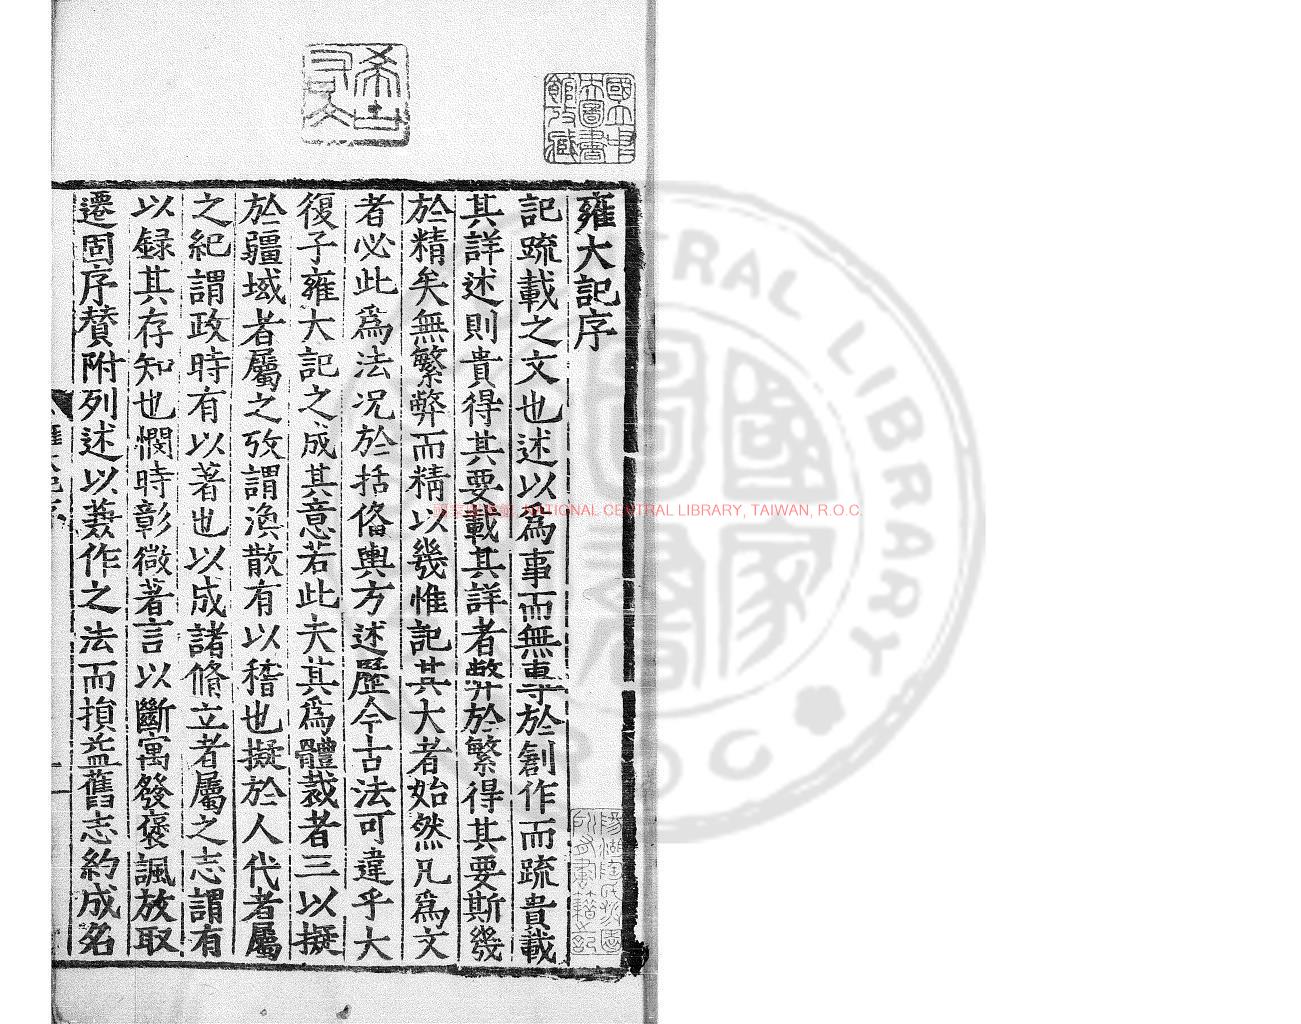 雍大記序
記疏載之文也述以爲事而無專於創作而疏貴載
其詳述則貴得其要載其詳者弊於繁得其要斯幾
於精矣無繁弊而精以幾惟記其大者始然凡爲文
者必此爲法况於括俻輿方述歷今古法可違乎大
復子雍大記之成其意若此夫其爲體裁者三以擬
於疆域者屬之攷謂渙散有以稽也擬於人代者屬
之紀謂政時有以著也以成諸脩立者屬之志謂有
以録其存知也憫時彰微著言以斷寓發褒諷放取
遷固序賛附列述以䕫作之法而損益舊志約成名
國立中央圖書館攷藏
NATIONAL CENTRAL LIBRARY, TAIWAN, R.O.C
CENTRAL LIBRARY
R O C
國家圖書館